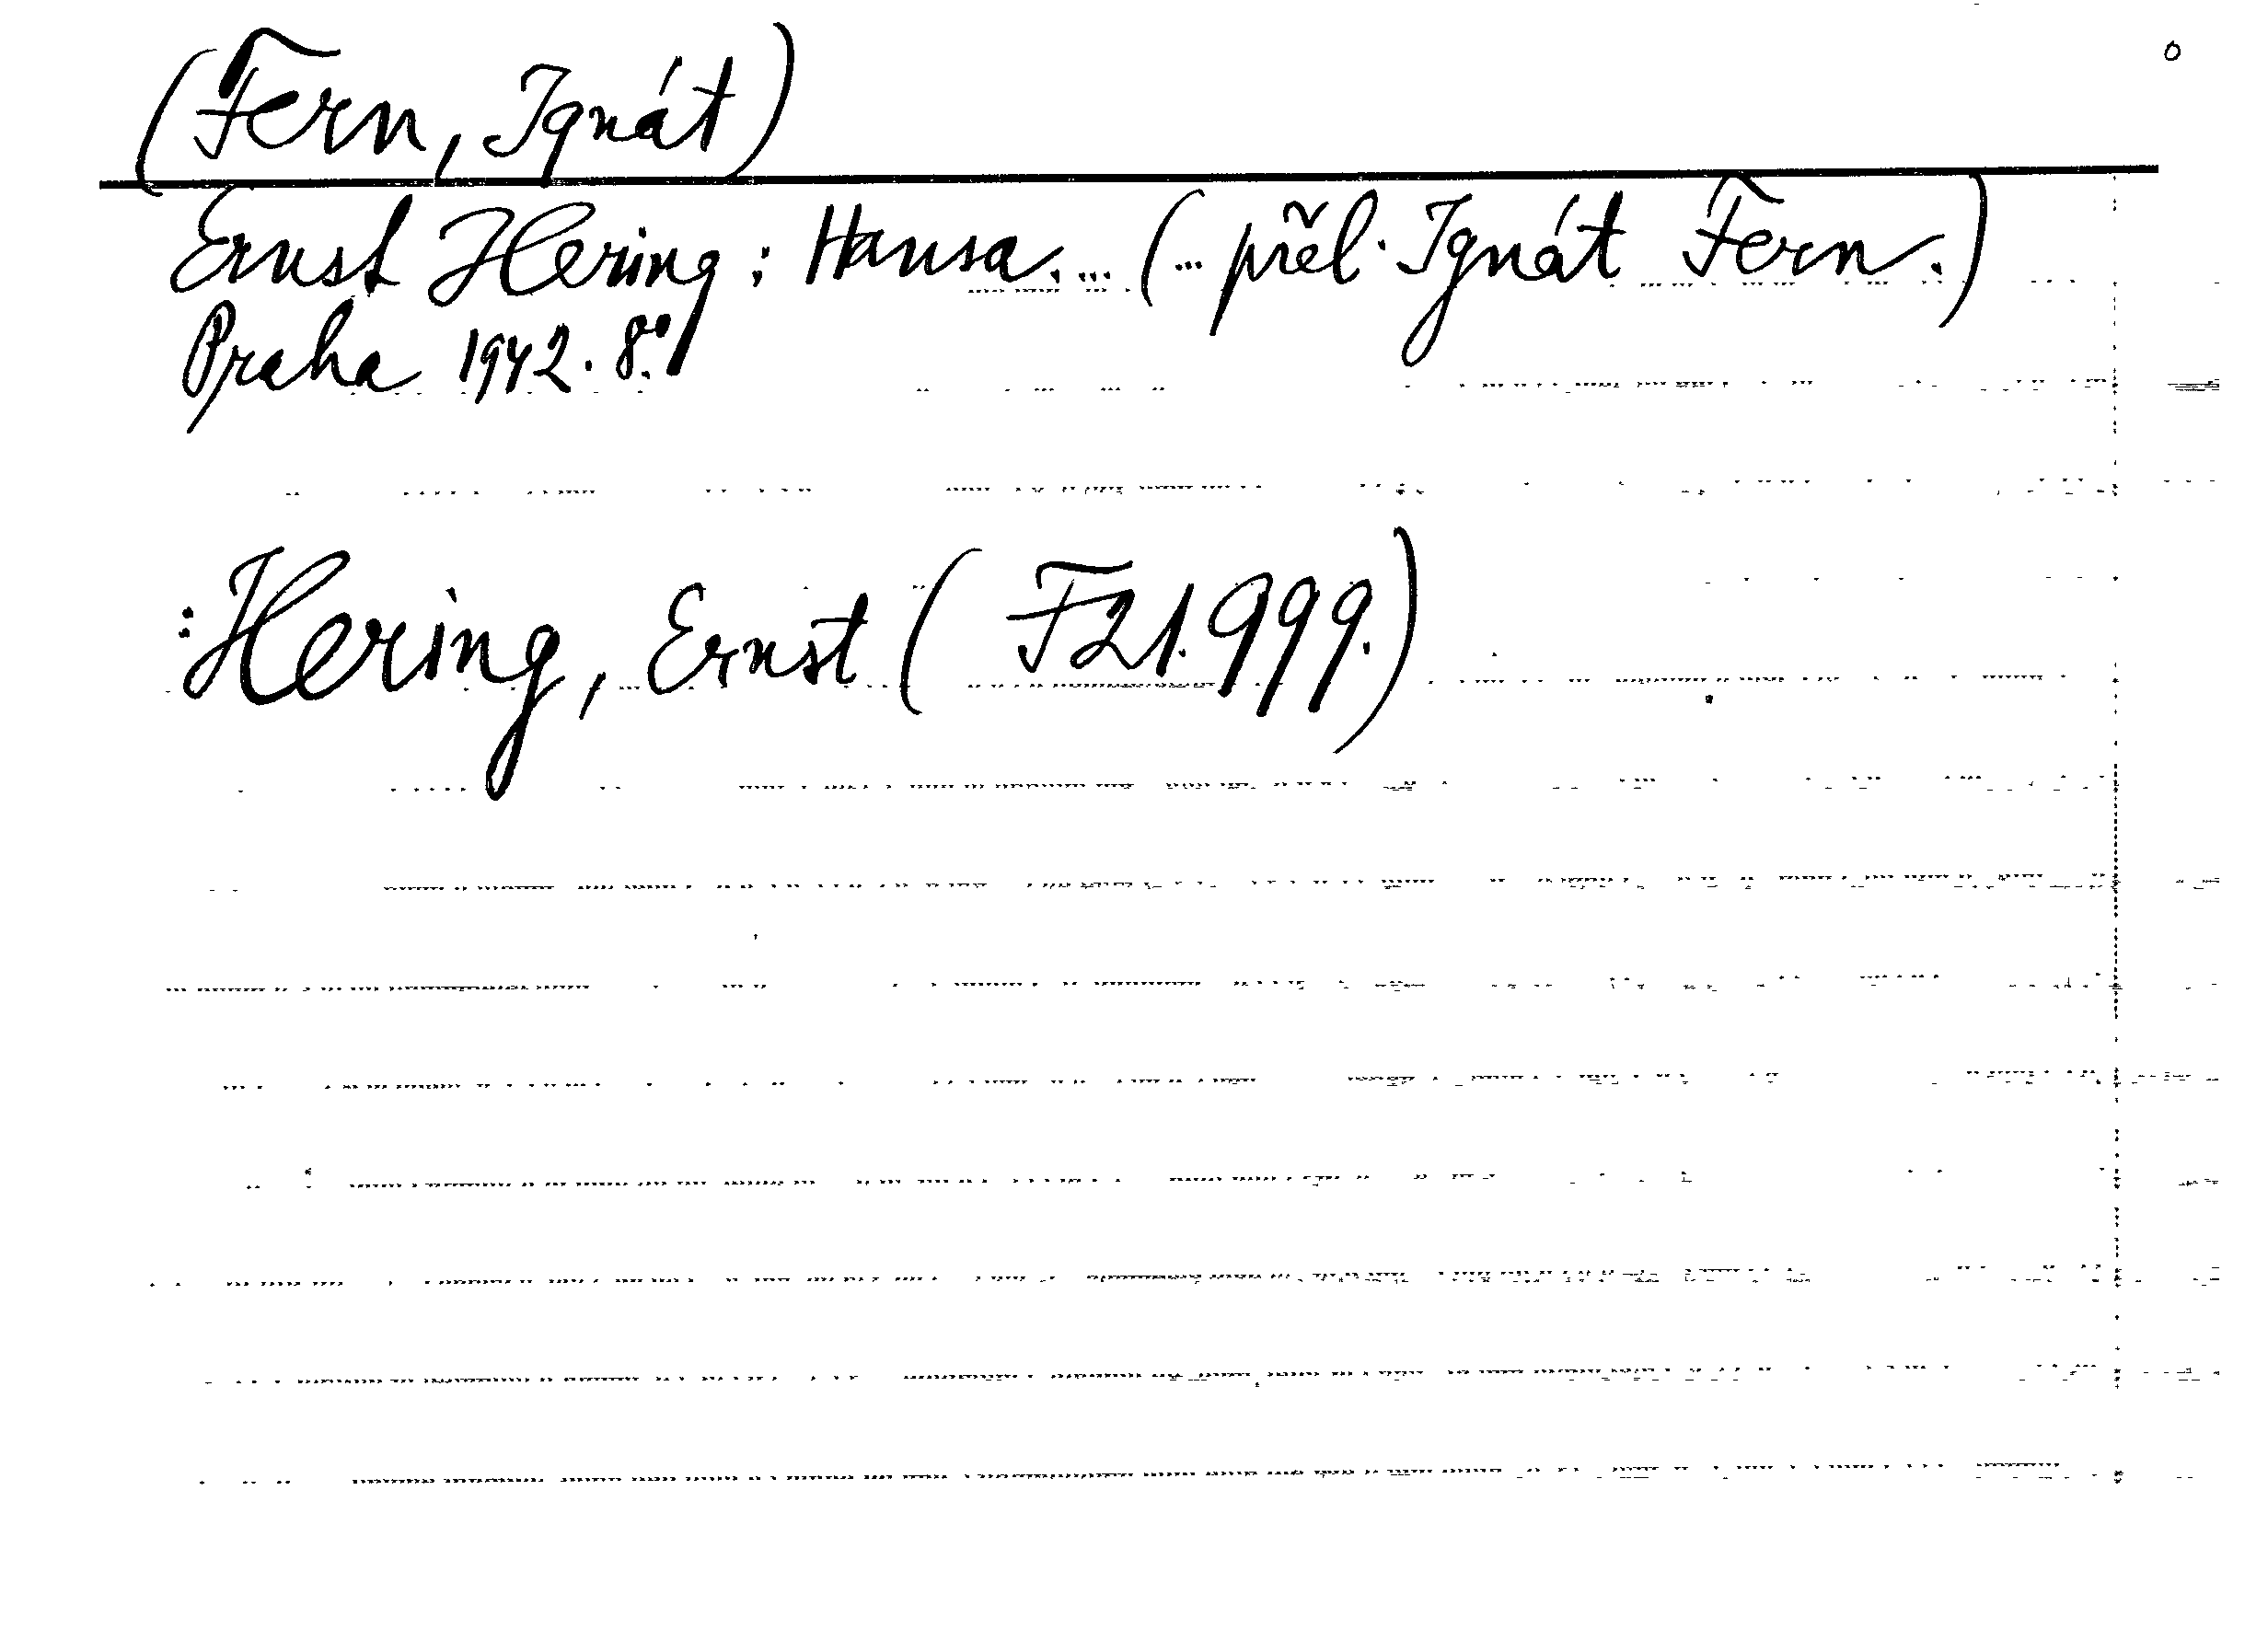 (Fern, Ignát)
Ernst Hering: Hansa.... (... přel. Ignát Fern.)
Praha 1942. 8.°
:Hering, Ernst (F21.999.)